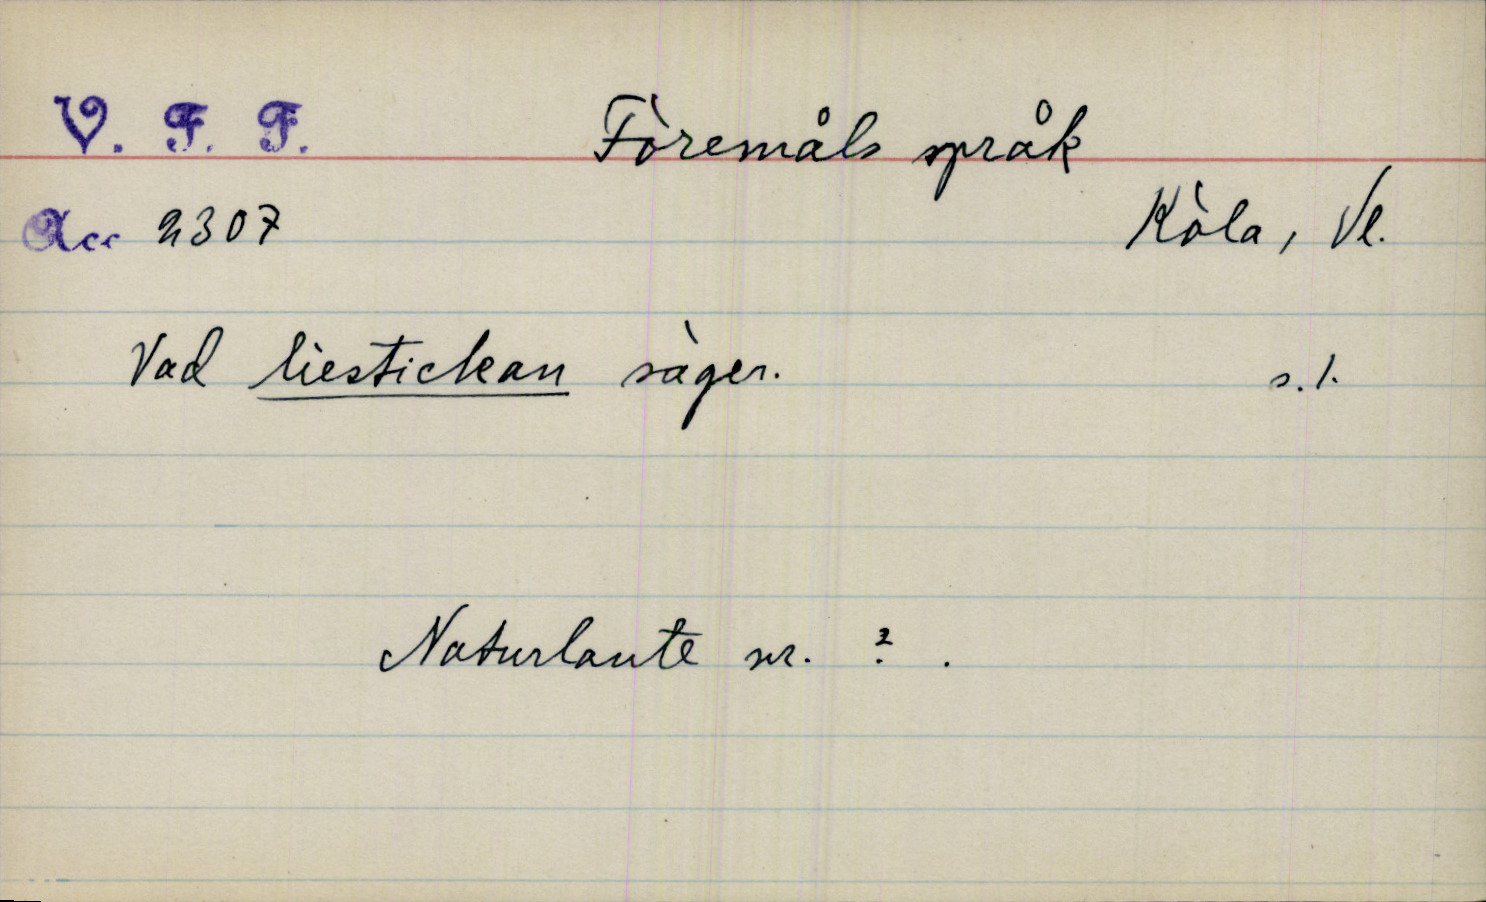 V. F. F. Föremåls språk
Acc 2307 Köla, Vl.
Vad liestickan säger. s. 1.
Naturlaute nr. ? .